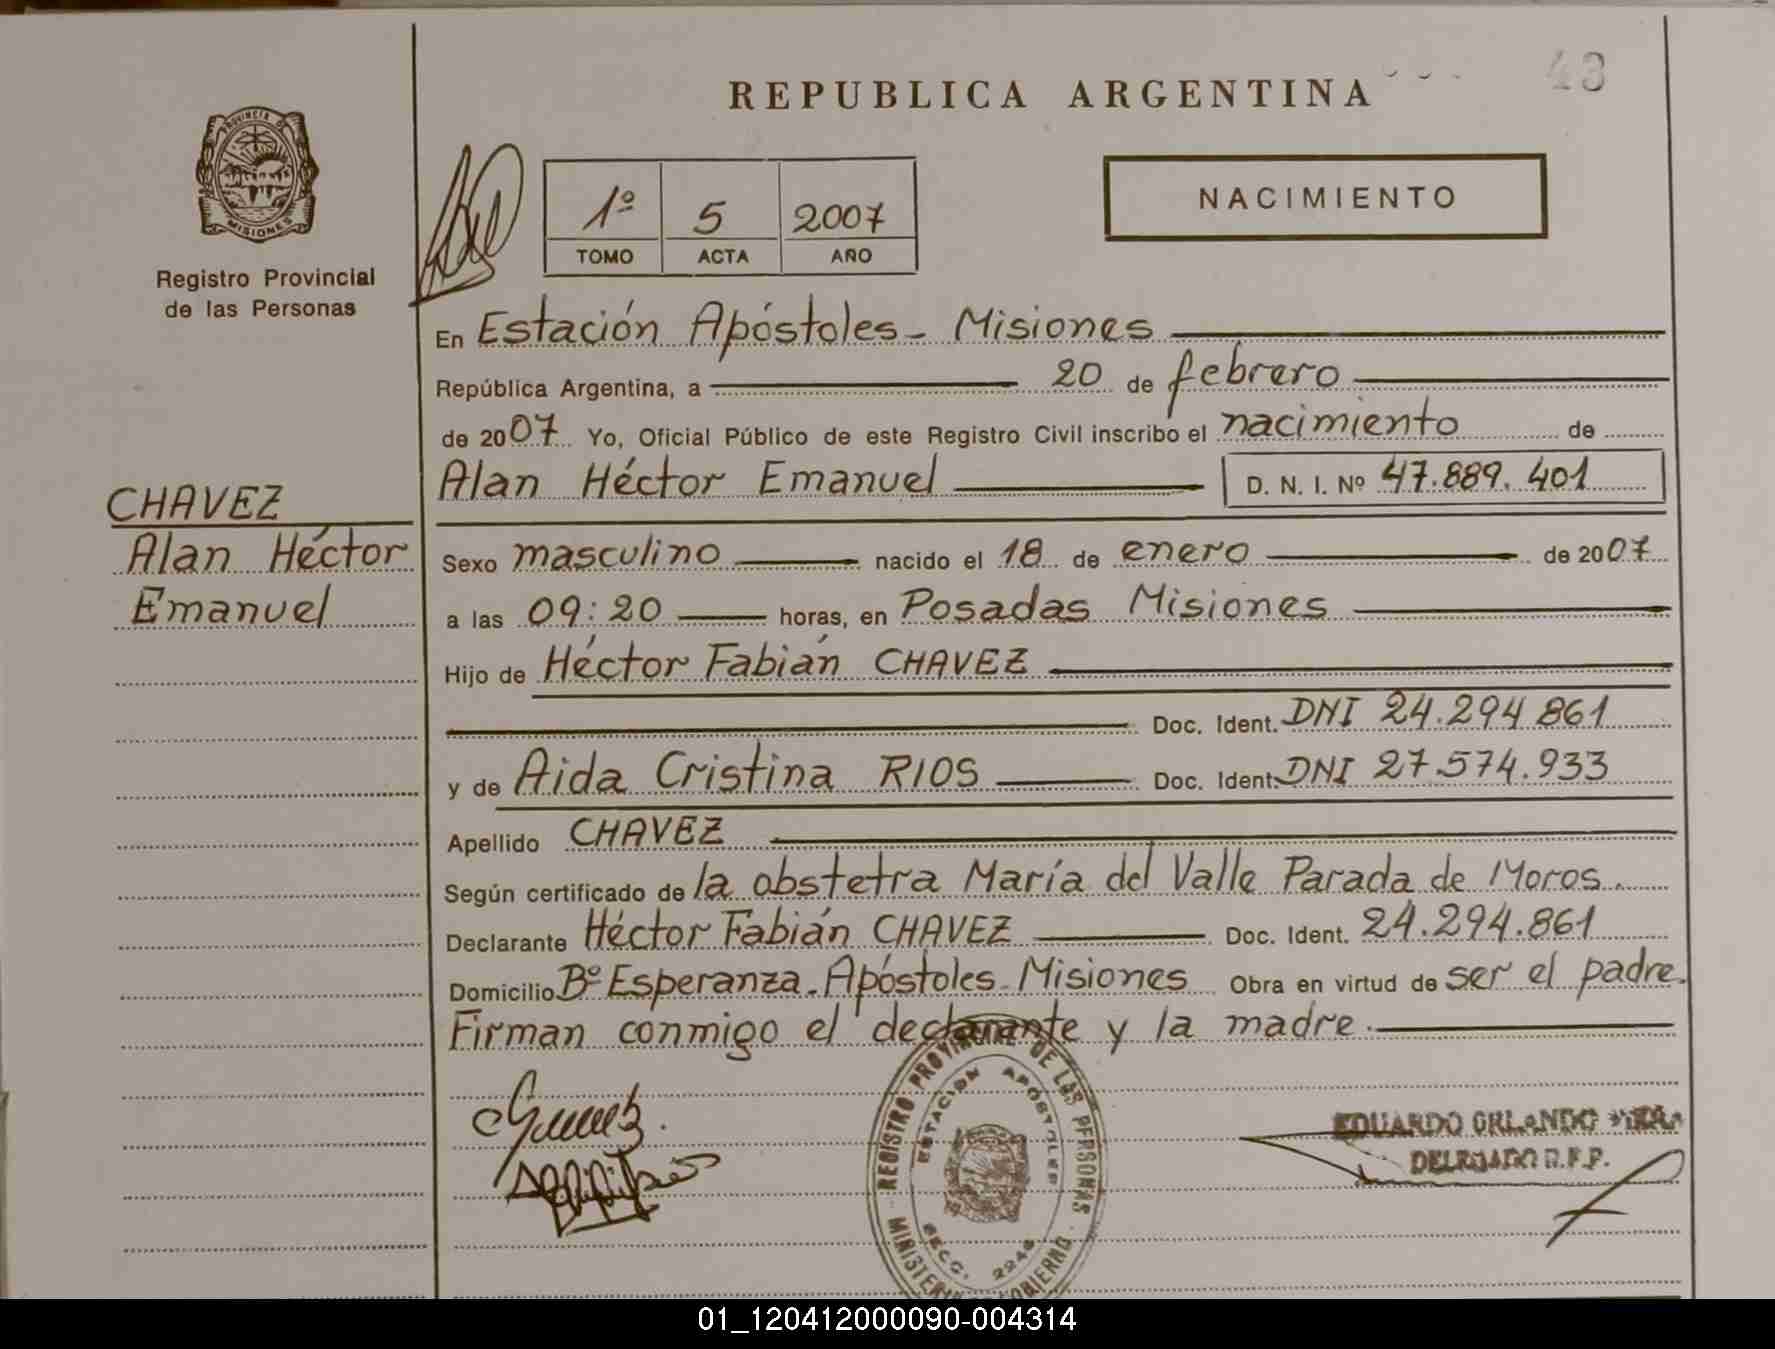 REPUBLICA ARGENTINA
43
PROVINCIA DE
MISIONES
Registro Provincial
de las Personas
1º 5 2007
TOMO ACTA AÑO
NACIMIENTO
En Estación Apóstoles - Misiones
República Argentina, a 20 de febrero
de 2007 Yo, Oficial Público de este Registro Civil inscribo el nacimiento de
Alan Héctor Emanuel D. N. I. Nº 47.889.401
CHAVEZ
Alan Héctor
Emanuel
Sexo masculino nacido el 18 de enero de 2007
a las 09:20 horas, en Posadas Misiones
Hijo de Héctor Fabián CHAVEZ
Doc. Ident. DNI 24.294.861
y de Aida Cristina RIOS Doc. Ident. DNI 27.574.933
Apellido CHAVEZ
Según certificado de la obstetra María del Valle Parada de Moros.
Declarante Héctor Fabián CHAVEZ Doc. Ident. 24.294.861
Domicilio Bº Esperanza - Apóstoles - Misiones Obra en virtud de ser el padre.
Firman conmigo el declarante y la madre.
REGISTRO PROVINCIAL DE LAS PERSONAS
ESTACION APOSTOLES
SECC. 2246
MINISTERIO DE GOBIERNO
EDUARDO ORLANDO
DELEGADO R.P.P.
01_120412000090-004314